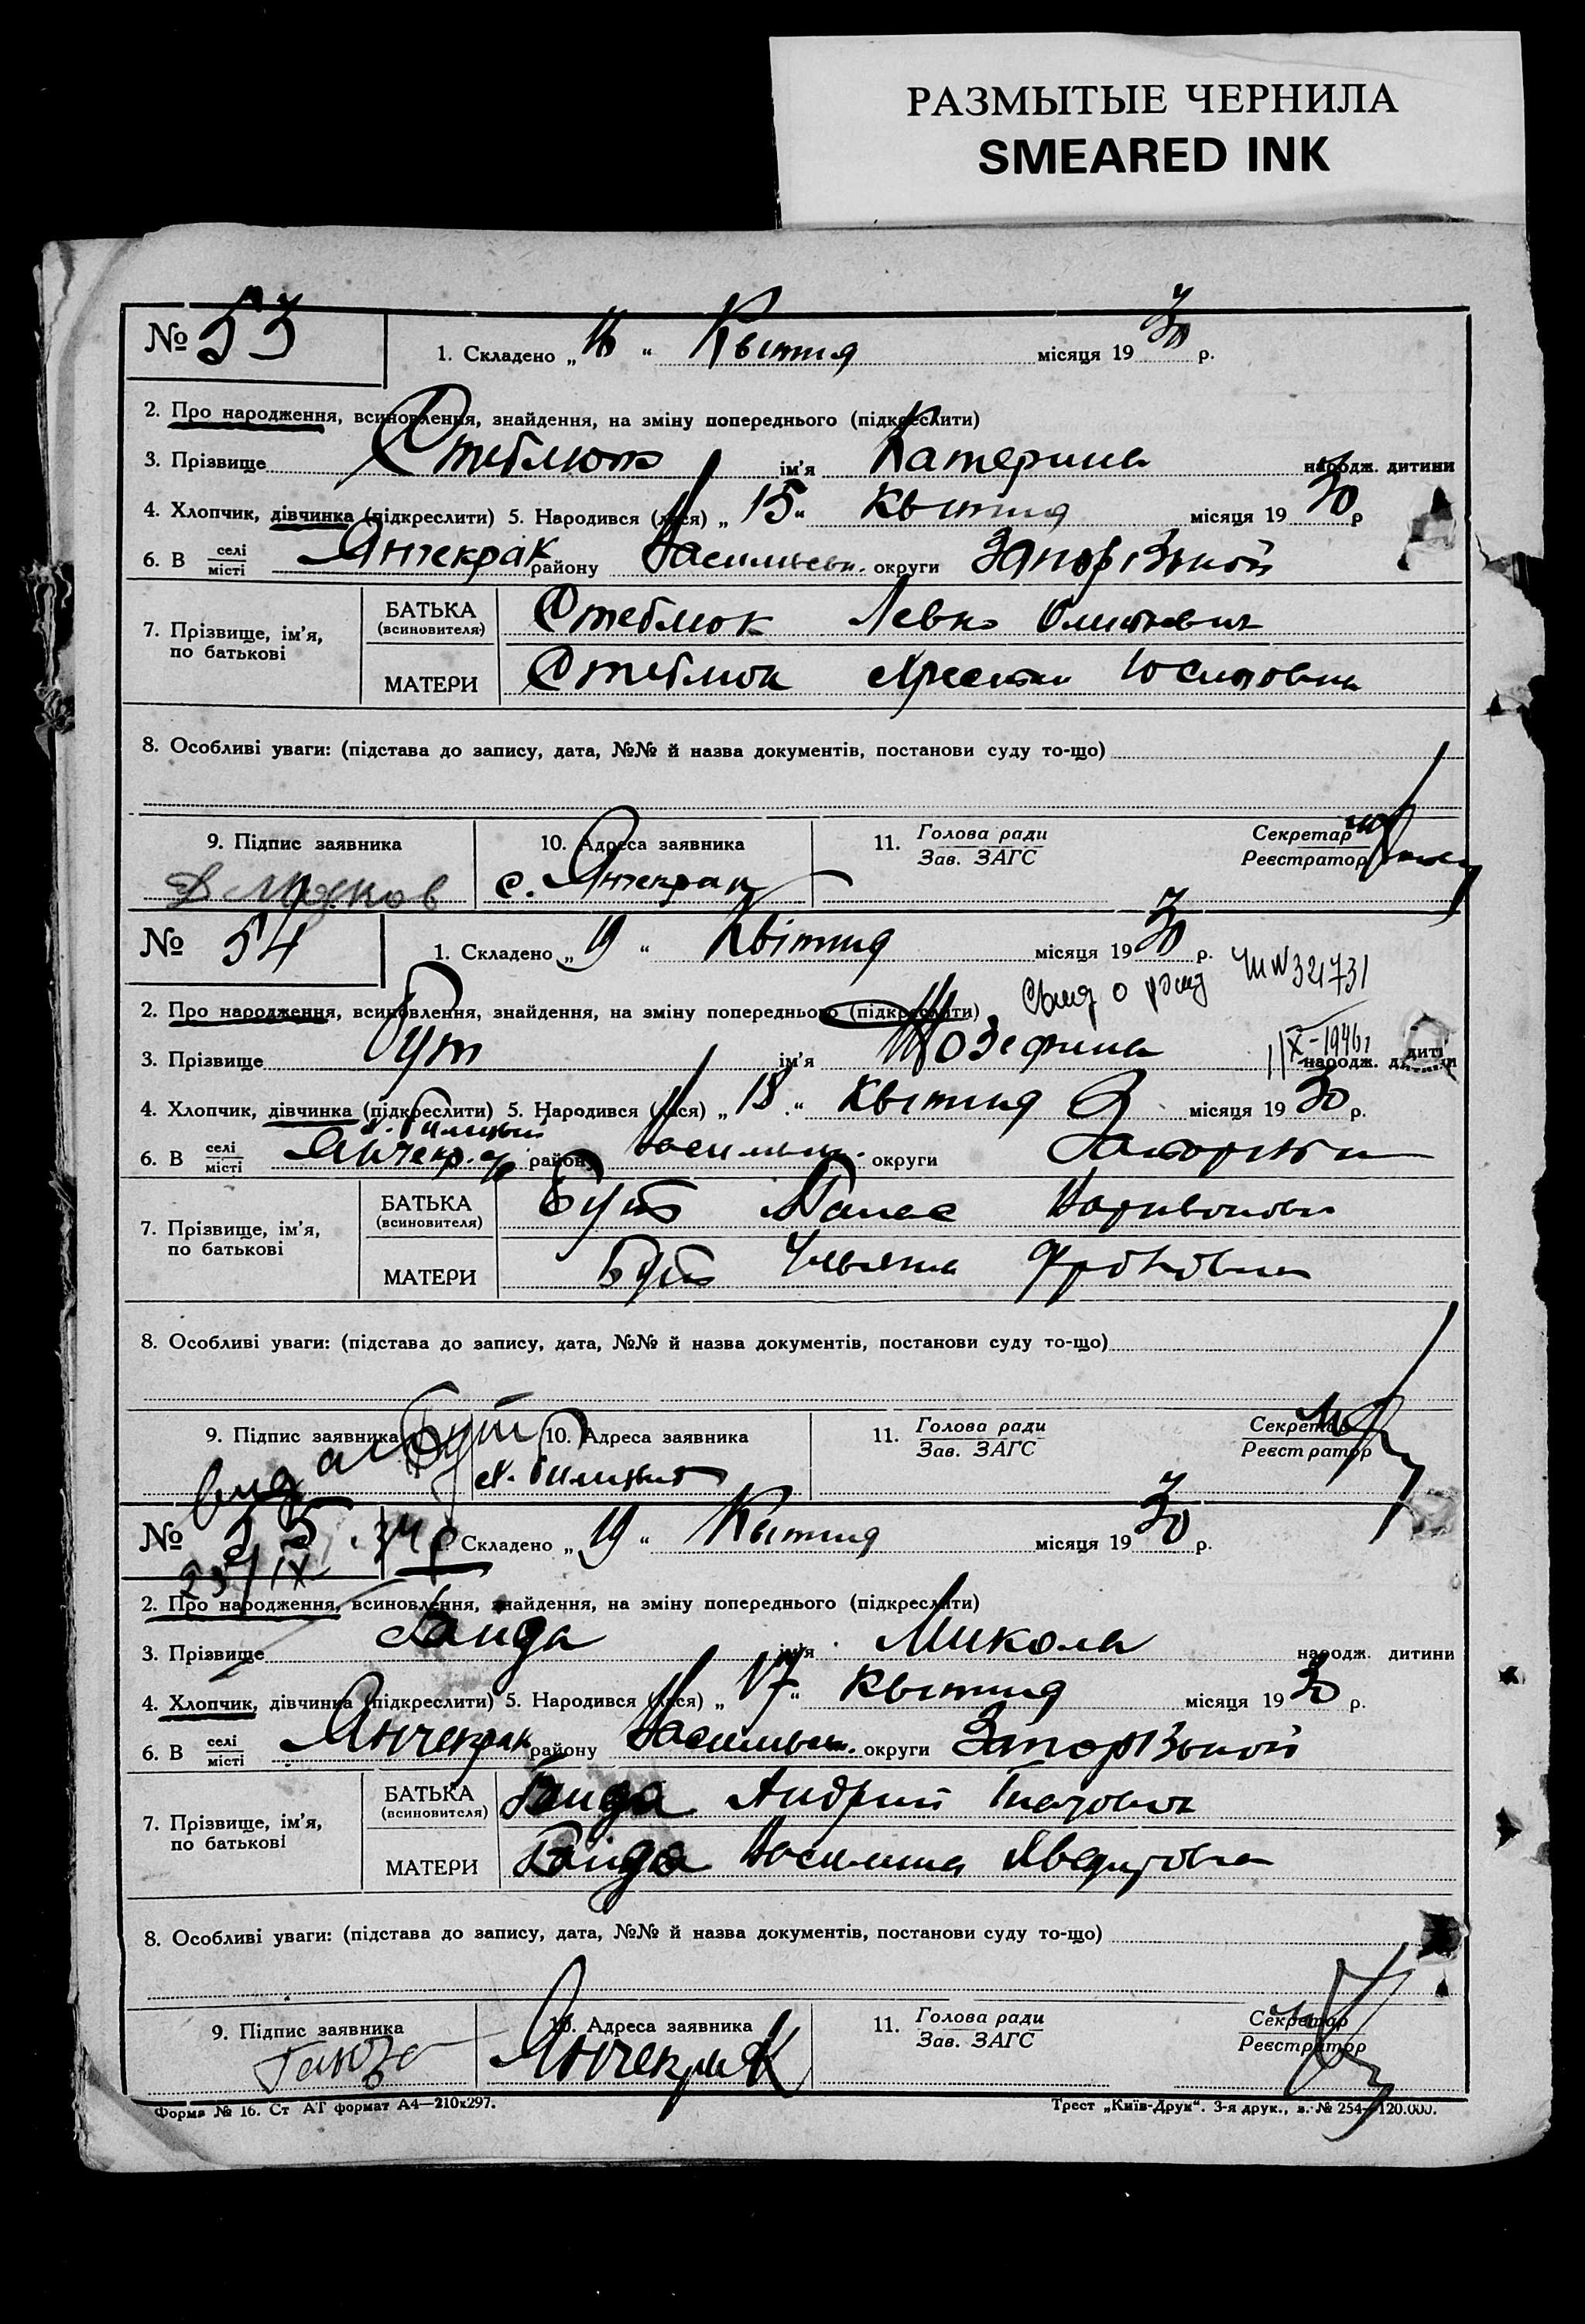 РАЗМЫТЫЕ ЧЕРНИЛА
SMEARED INK
№ 53
1. Складено „ 16 “ Квитня місяця 19 30 р.
2. Про народження, всиновлення, знайдення, на зміну попереднього (підкреслити)
3. Прізвище Стеблюк ім'я Катерина народж. дитини
4. Хлопчик, дівчинка (підкреслити) 5. Народився (лася) „ 15 “ Квитня місяця 19 30 р
6. В селі місті Янчекрак району Васильевськ. округи Запорізькой
7. Прізвище, ім'я, по батькові
БАТЬКА (всиновителя) Стеблюк Левко
МАТЕРИ Стеблюк Юсиповна
8. Особливі уваги: (підстава до запису, дата, №№ й назва документів, постанови суду то-що)
9. Підпис заявника 10. Адреса заявника 11. Голова ради Зав. ЗАГС Секретар Реєстратор
с. Янчекрак
№ 54
1. Складено „ 19 “ Квітня місяця 19 30 р.
Свид о рожд 321731
2. Про народження, всиновлення, знайдення, на зміну попереднього (підкреслити)
3. Прізвище Бут ім'я Жозефина народж. дитини
IX-1946г
4. Хлопчик, дівчинка (підкреслити) 5. Народився (лася) „ 18 “ Квитня місяця 19 30 р.
6. В селі місті Янчекр. району округи
7. Прізвище, ім'я, по батькові
БАТЬКА (всиновителя) Бут Панас
МАТЕРИ Бут Ульяна
8. Особливі уваги: (підстава до запису, дата, №№ й назва документів, постанови суду то-що)
9. Підпис заявника Бут 10. Адреса заявника 11. Голова ради Зав. ЗАГС Секретар Реєстратор
№ 55
1. Складено „ 19 “ Квитня місяця 19 30 р.
25/IX
2. Про народження, всиновлення, знайдення, на зміну попереднього (підкреслити)
3. Прізвище Гаида ім'я Микола народж. дитини
4. Хлопчик, дівчинка (підкреслити) 5. Народився (лася) „ 17 “ Квитня місяця 19 30 р.
6. В селі місті Янчекрак району Васильевськ. округи Запорізькой
7. Прізвище, ім'я, по батькові
БАТЬКА (всиновителя) Гаида Андрий Гнатович
МАТЕРИ Гаида Василина
8. Особливі уваги: (підстава до запису, дата, №№ й назва документів, постанови суду то-що)
9. Підпис заявника 10. Адреса заявника 11. Голова ради Зав. ЗАГС Секретар Реєстратор
Янчекрак
Форма № 16. Ст АТ формат А4—210х297. Трест „Київ-Друк“. 3-я друк., з. № 254—120.000.